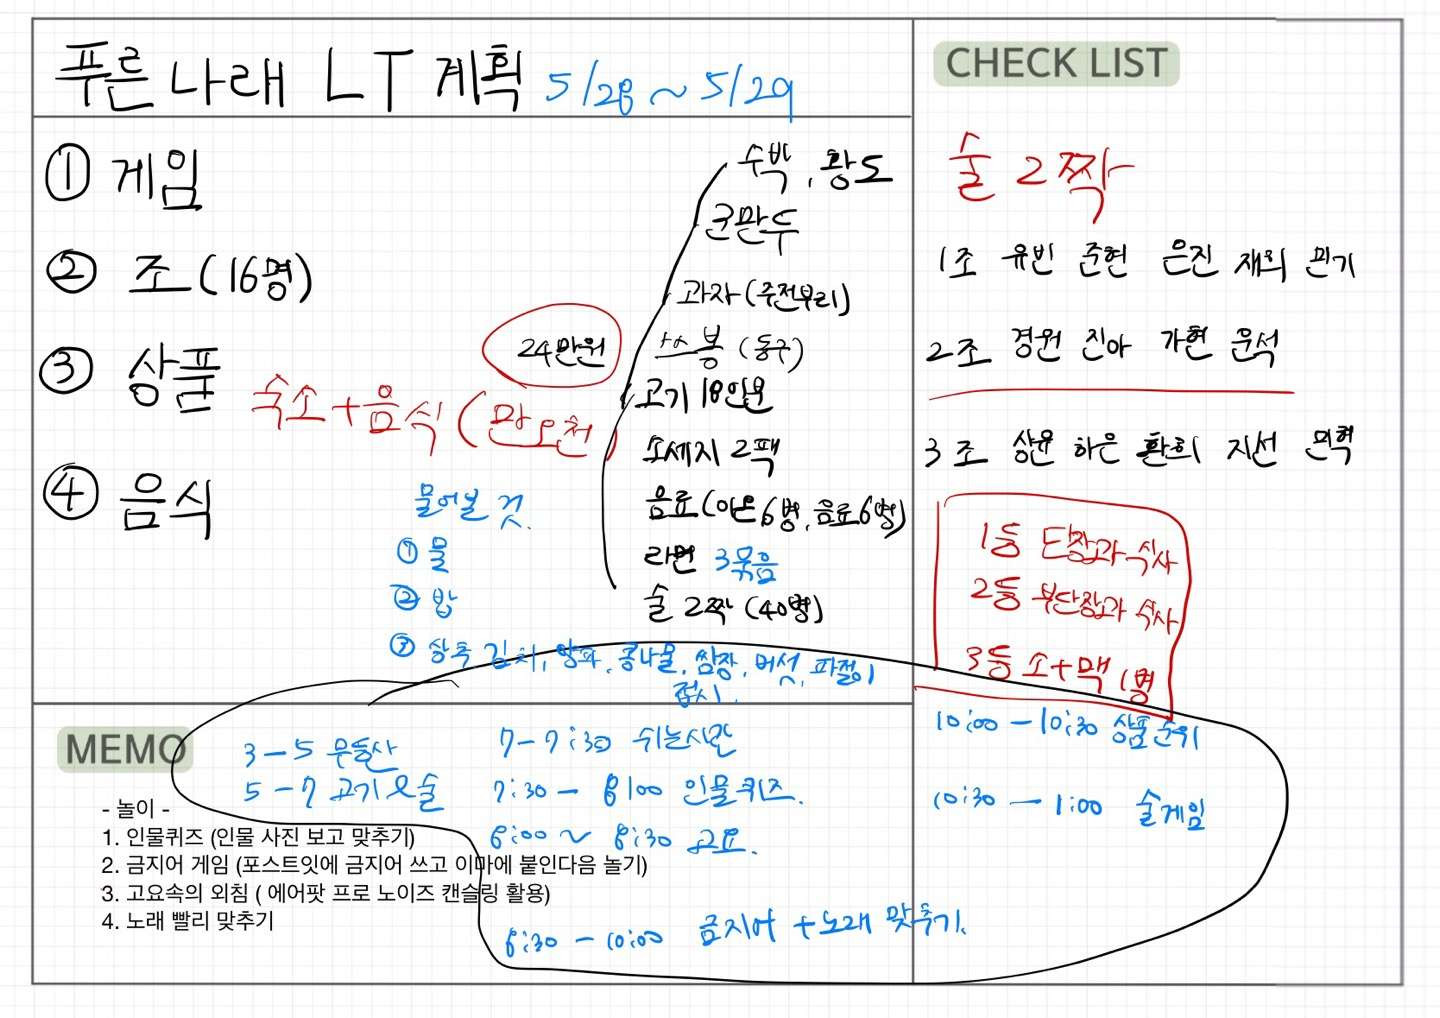 푸른나래 LT 계획 5/28 ~ 5/29
① 게임
② 조 (16명)
③ 상품
④ 음식
숙소+음식 (만오천)
24만원
수박, 황도
군만두
과자 (주전부리)
봉 (동구)
고기 18인분
소세지 2팩
음료 (이온6병, 음료6병)
라면 3묶음
술 2짝 (40병)
물어볼 것.
① 물
② 밥
③ 상추 김치, 양파, 콩나물, 쌈장, 버섯, 파절이
접시.
CHECK LIST
술 2짝
1조 유빈 준현 은진 재희 민기
2조 경원 진아 가현 문석
3조 상윤 하은 환희 지선 민혁
1등 단장과 식사
2등 부단장과 식사
3등 소+맥 1병
MEMO
3-5 무등산
5-7 고기&술
- 놀이 -
1. 인물퀴즈 (인물 사진 보고 맞추기)
2. 금지어 게임 (포스트잇에 금지어 쓰고 이마에 붙인다음 놀기)
3. 고요속의 외침 ( 에어팟 프로 노이즈 캔슬링 활용)
4. 노래 빨리 맞추기
7-7:30 쉬는시간
7:30 - 8:00 인물퀴즈.
8:00 ~ 8:30 고요.
8:30 - 10:00 금지어 + 노래 맞추기.
10:00 - 10:30 상품순위
10:30 - 1:00 술게임